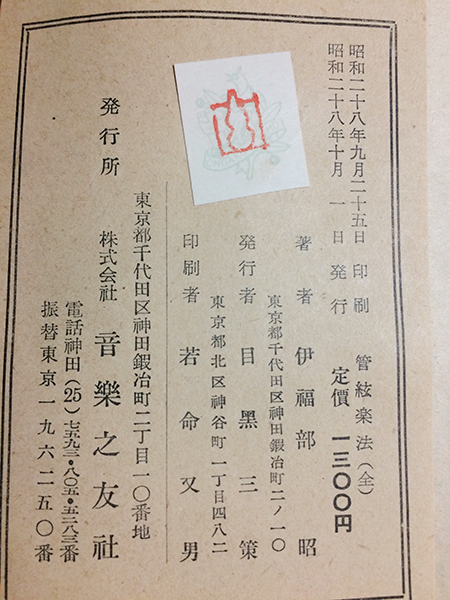 昭和二十八年九月二十五日 印刷
昭和二十八年十月 一日 発行
管絃楽法(全)
定價 一三〇〇円
著者 伊福部 昭
東京都千代田区神田鍛冶町二ノ一〇
発行者 目黒三策
東京都北区神谷町一丁目四八二
印刷者 若命又男
東京都千代田区神田鍛冶町二丁目一〇番地
発行所 株式会社 音樂之友社
電話神田(25)七五九三・八〇五・五二八三番
振替東京一九六二五〇番